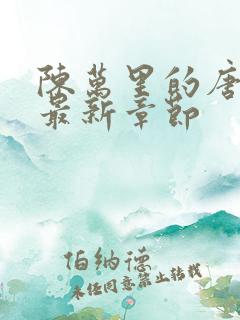 陳萬里的唐
最新章節
伯納德
未经同意禁止转载